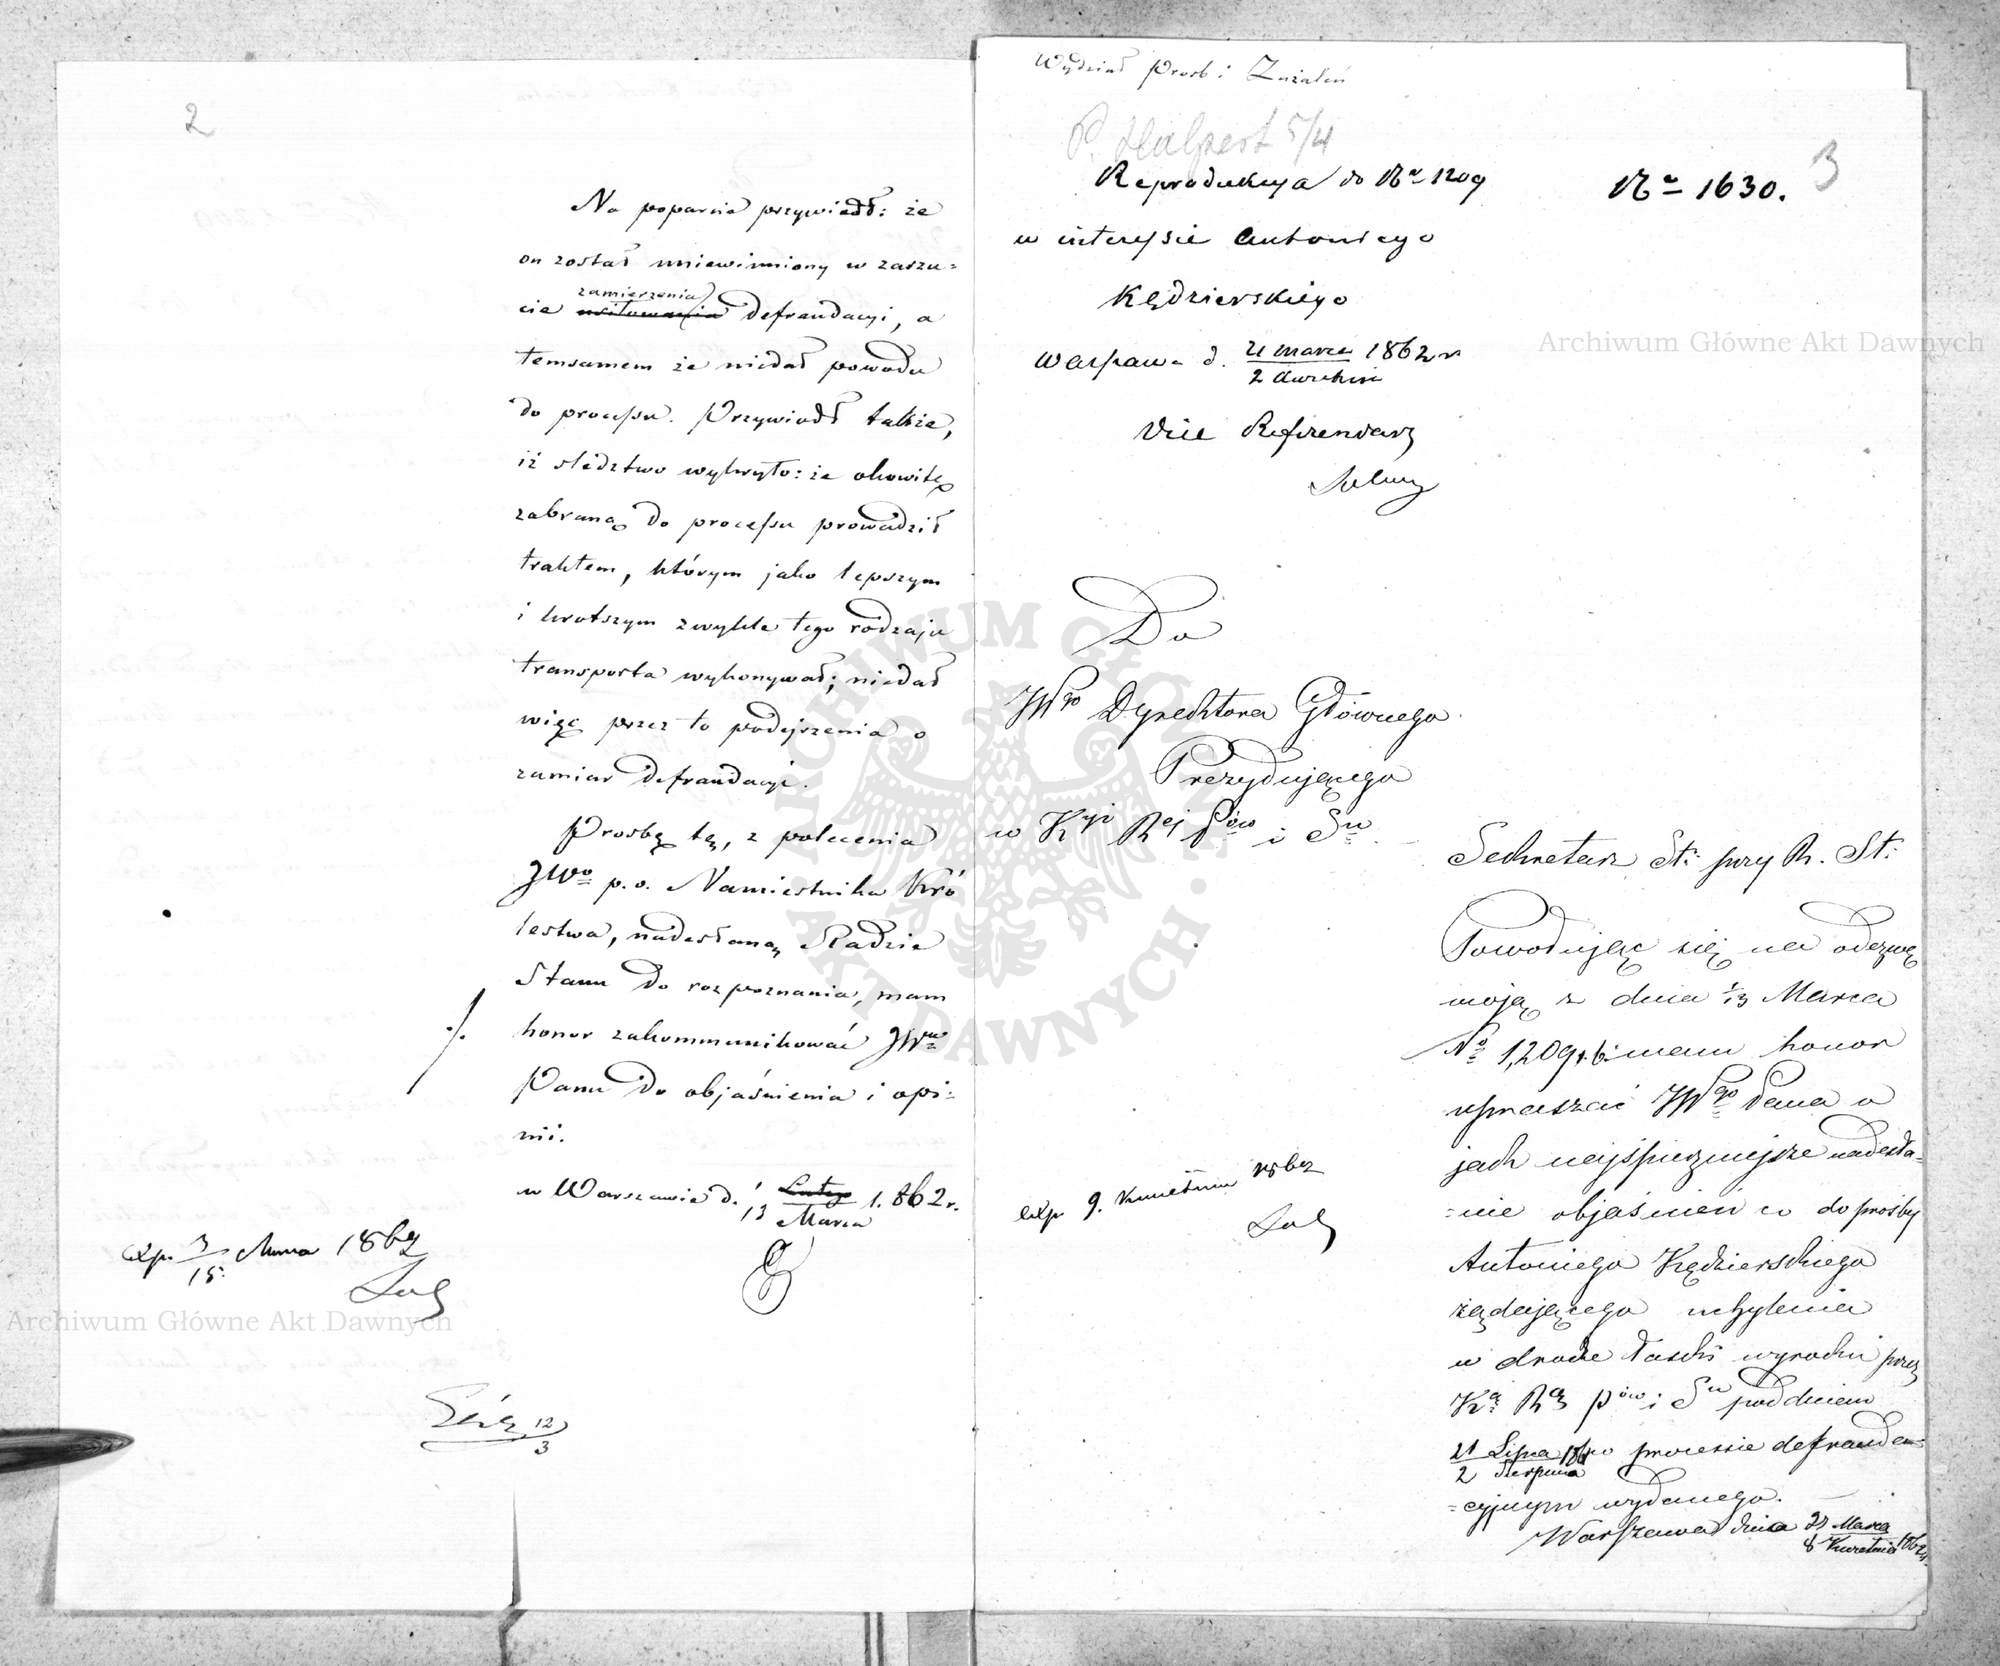 2
Na poparcie przywiódł: że
on został uniewinniony w zarzu=
zamierzenia
cie usiłowania defraudacyi, a
temsamem że niedał powodu
do processu. Przywiódł także,
iż śledztwo wykryło: że okowitę
zabraną do processu prowadził
traktem, którym jako lepszym
i krotszym zwykle tego rodzaju
transporta wykonywał; niedał
więc przez to podejrzenia o
zamiar defraudacyi.
Prosbę tę, z polecenia
JWo p. o. Namiestnika Kró
lestwa, nadesłaną Radzie
Stanu do rozpoznania, mam
honor zakommunikować JWu
Panu do objaśnienia i opi=
nii.
w Warszawie d. 1/13 Lutego Marca 1.862 r.
exp. 3/15 Marca 1862
12/3
Wydział Prosb i Zażaleń
P. Halpert 5/4
3
Reprodukcya do No 1209
No 1630.
w interesie Antoniego
Kędzierskiego
Warszawa d. 21 marca / 2 kwietnia 1862 r
Vice Referendarz
Do
JWgo Dyrektora Głównego
Prezydującego
w Kyi Rej Pów i Su
Sekretarz St: przy R. St:
Powodując się na odezwę
moją z dnia 1/13 Marca
No 1,209 r. b. mam honor
upraszać JWgo Pana o
jak najspieszniejsze nadesła=
=nie objaśnień co do prośby
Antoniego Kędzierskiego
żądającego uchylenia
w drodze łaski wyroku przez
Ką Rą Pów i Su pod dniem
21 Lipca / 2 Sierpnia 186 w processie defrauda=
=cyjnym wydanego.
Warszawa dnia 27 Marca / 8 Kwietnia 1862 r.
exp. 9. Kwietnia 1862
Archiwum Główne Akt Dawnych
Archiwum Główne Akt Dawnych
ARCHIWUM GŁÓWNE AKT DAWNYCH